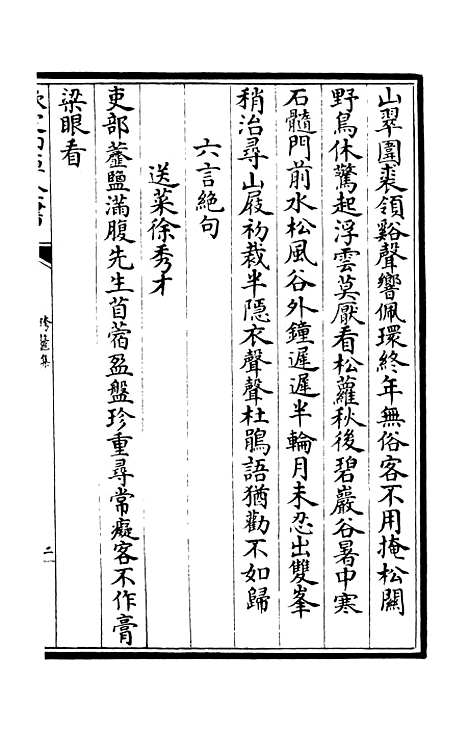 山翠圍裘領谿聲響佩環終年無俗客不用掩松關
野鳥休驚起浮雲莫厭看松蘿秋後碧巖谷暑中寒
石髓門前水松風谷外鐘遲遲半輪月未忍出雙峯
稍治尋山屐初裁半隱衣聲聲杜鵑語猶勸不如歸
六言絶句
送菜徐秀才
吏部虀鹽滿腹先生苜蓿盈盤珍重尋常癡客不作膏
粱眼看
集
二